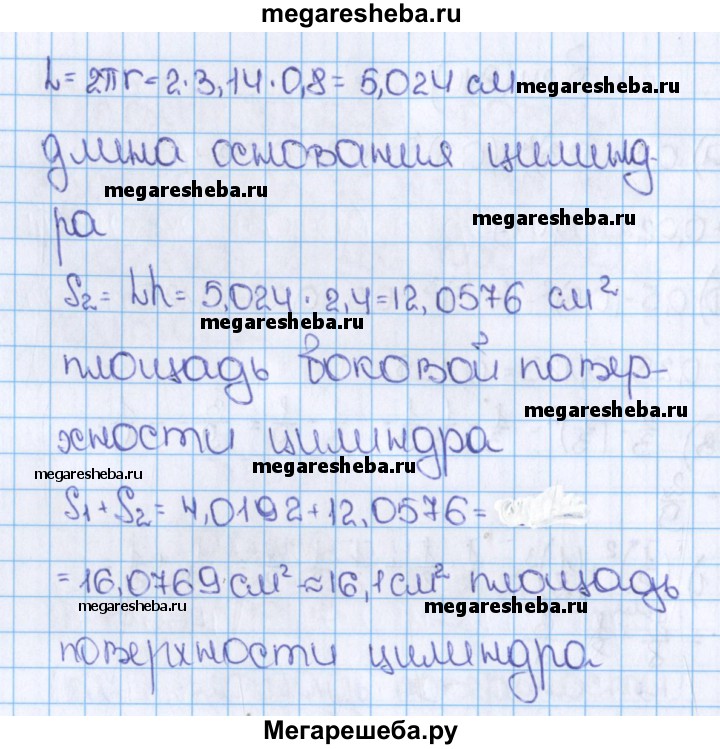 megaresheba.ru
L = 2πr = 2·3,14·0,8 = 5,024 см
megaresheba.ru
длина основания цилинд-
megaresheba.ru
ра
megaresheba.ru
S₂ = Lh = 5,024 · 2,4 = 12,0576 см²
megaresheba.ru
площадь боковой повер-
megaresheba.ru
хности цилиндра
megaresheba.ru
megaresheba.ru
S₁ + S₂ = 4,0192 + 12,0576 =
= 16,0769 см² ≈ 16,1 см² площадь
megaresheba.ru
megaresheba.ru
поверхности цилиндра
Мегарешеба.ру